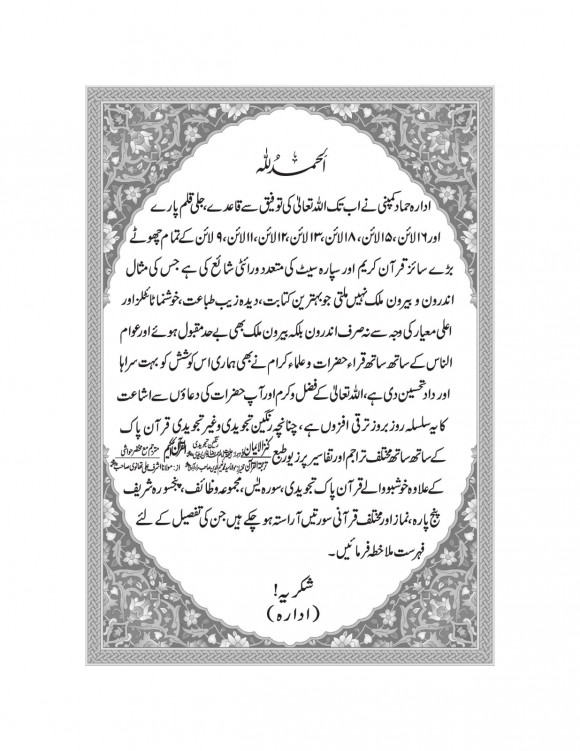 الحمد للہ
ادارہ حماد کمپنی نے اب تک اللہ تعالیٰ کی توفیق سے قاعدے، جلی قلم پارے
اور ۱۶ لائن، ۱۵ لائن، ۱۸ لائن، ۱۳ لائن، ۱۲ لائن، ۱۱ لائن، ۹ لائن کے تمام چھوٹے
بڑے سائز قرآن کریم اور سپارہ سیٹ کی متعدد ورائٹی شائع کی ہے جس کی مثال
اندرون و بیرون ملک نہیں ملتی جو بہترین کتابت، دیدہ زیب طباعت، خوشنما ٹائٹلز اور
اعلیٰ معیار کی وجہ سے نہ صرف اندرون بلکہ بیرون ملک بھی بے حد مقبول ہوئے اور عوام
الناس کے ساتھ ساتھ قراء حضرات و علماء کرام نے بھی ہماری اس کوشش کو بہت سراہا
اور داد تحسین دی ہے، اللہ تعالیٰ کے فضل و کرم اور آپ حضرات کی دعاؤں سے اشاعت
کا یہ سلسلہ روز بروز ترقی افزوں ہے، چنانچہ رنگین تجویدی و غیر تجویدی قرآن پاک
کے ساتھ ساتھ مختلف تراجم اور تفاسیر پر زیور طبع کنز الایمان رنگین تجویدی القرآن الکریم مترجم مع مختصر حواشی
ترجمۃ القرآن از: مولانا اشرف علی تھانوی صاحب
کے علاوہ خوشبو والے قرآن پاک تجویدی، سورہ یٰس، مجموعہ وظائف، پنجسورہ شریف
پنج پارہ، نماز اور مختلف قرآنی سورتیں آراستہ ہو چکے ہیں جن کی تفصیل کے لئے
فہرست ملاحظہ فرمائیں۔
شکریہ!
(ادارہ)